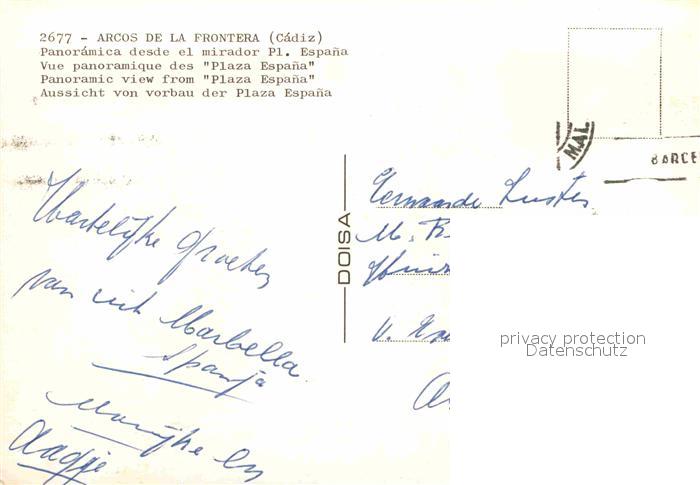 2677 - ARCOS DE LA FRONTERA (Cádiz)
Panorámica desde el mirador Pl. España
Vue panoramique des "Plaza España"
Panoramic view from "Plaza España"
Aussicht von vorbau der Plaza España
MAL
BARCE
DOISA
Hartelijke groeten
van uit Marbella
Spanje
Marijke en
Aagje
M.
V.
privacy protection
Datenschutz